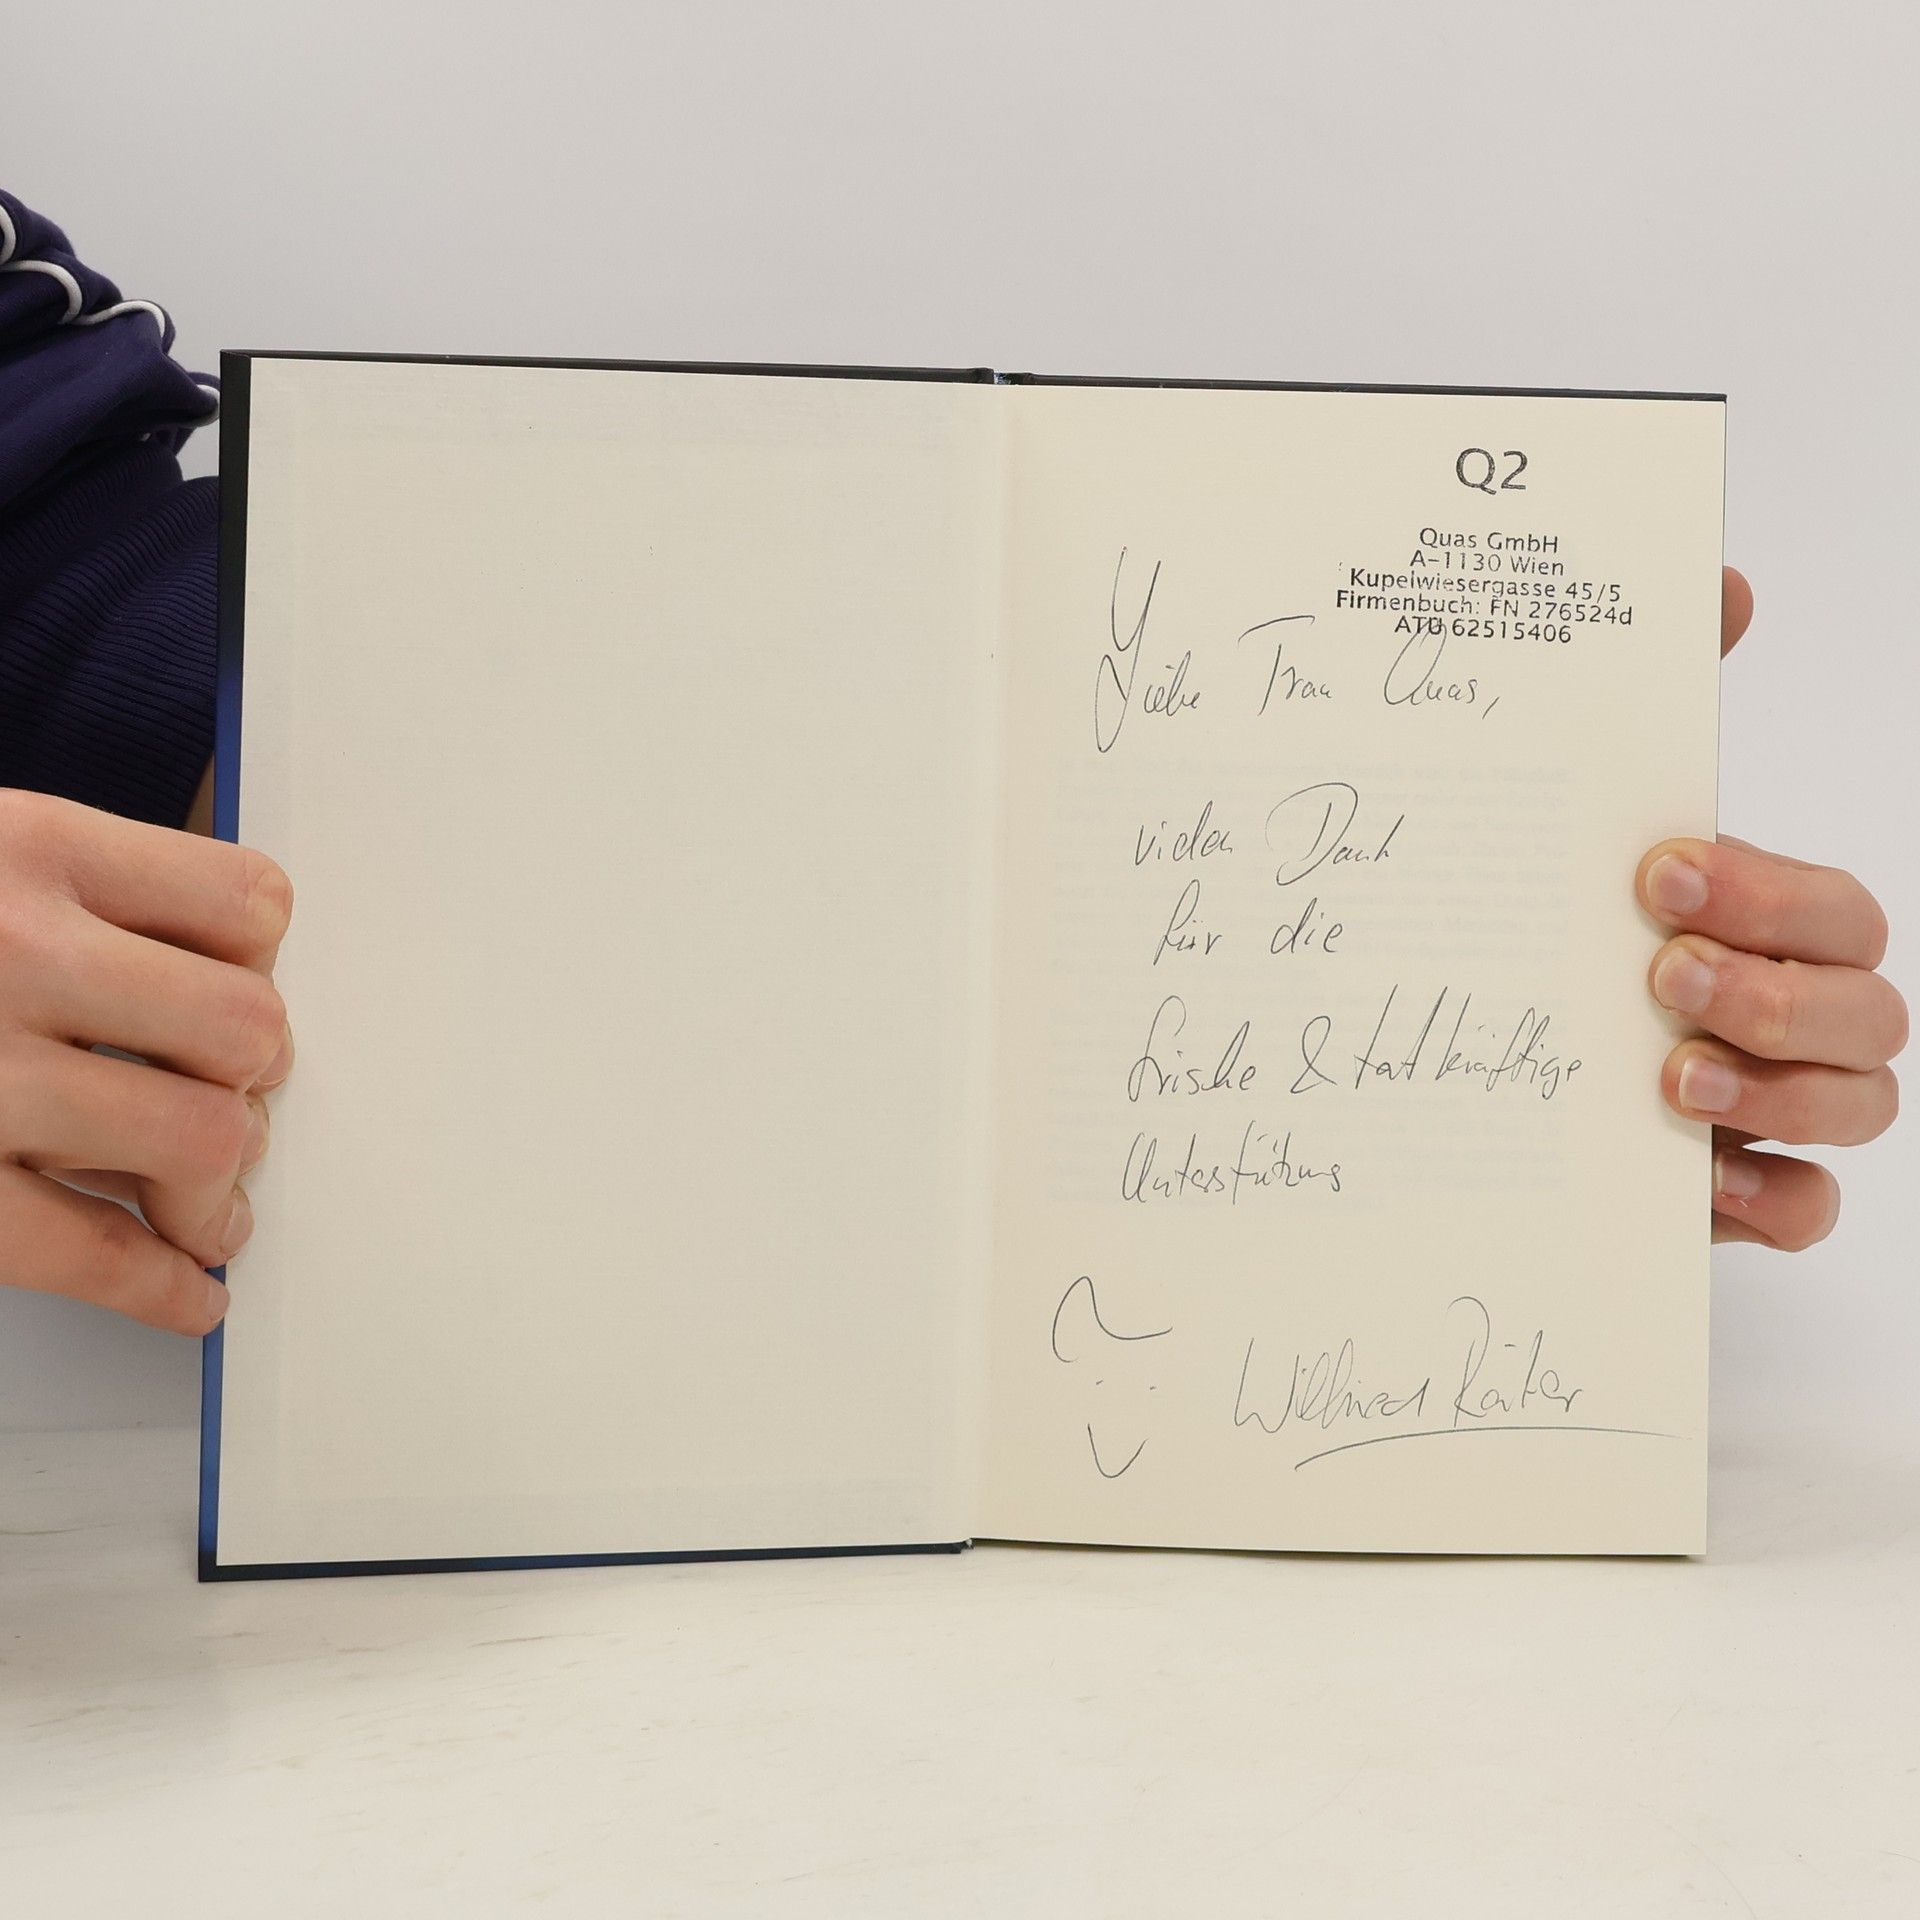 Q2
Quas GmbH
A-1130 Wien
Kupelwiesergasse 45/5
Firmenbuch: FN 276524d
ATU 62515406
Liebe Frau Quas,
vielen Dank
für die
frische & tatkräftige
Unterstützung
Wilfried